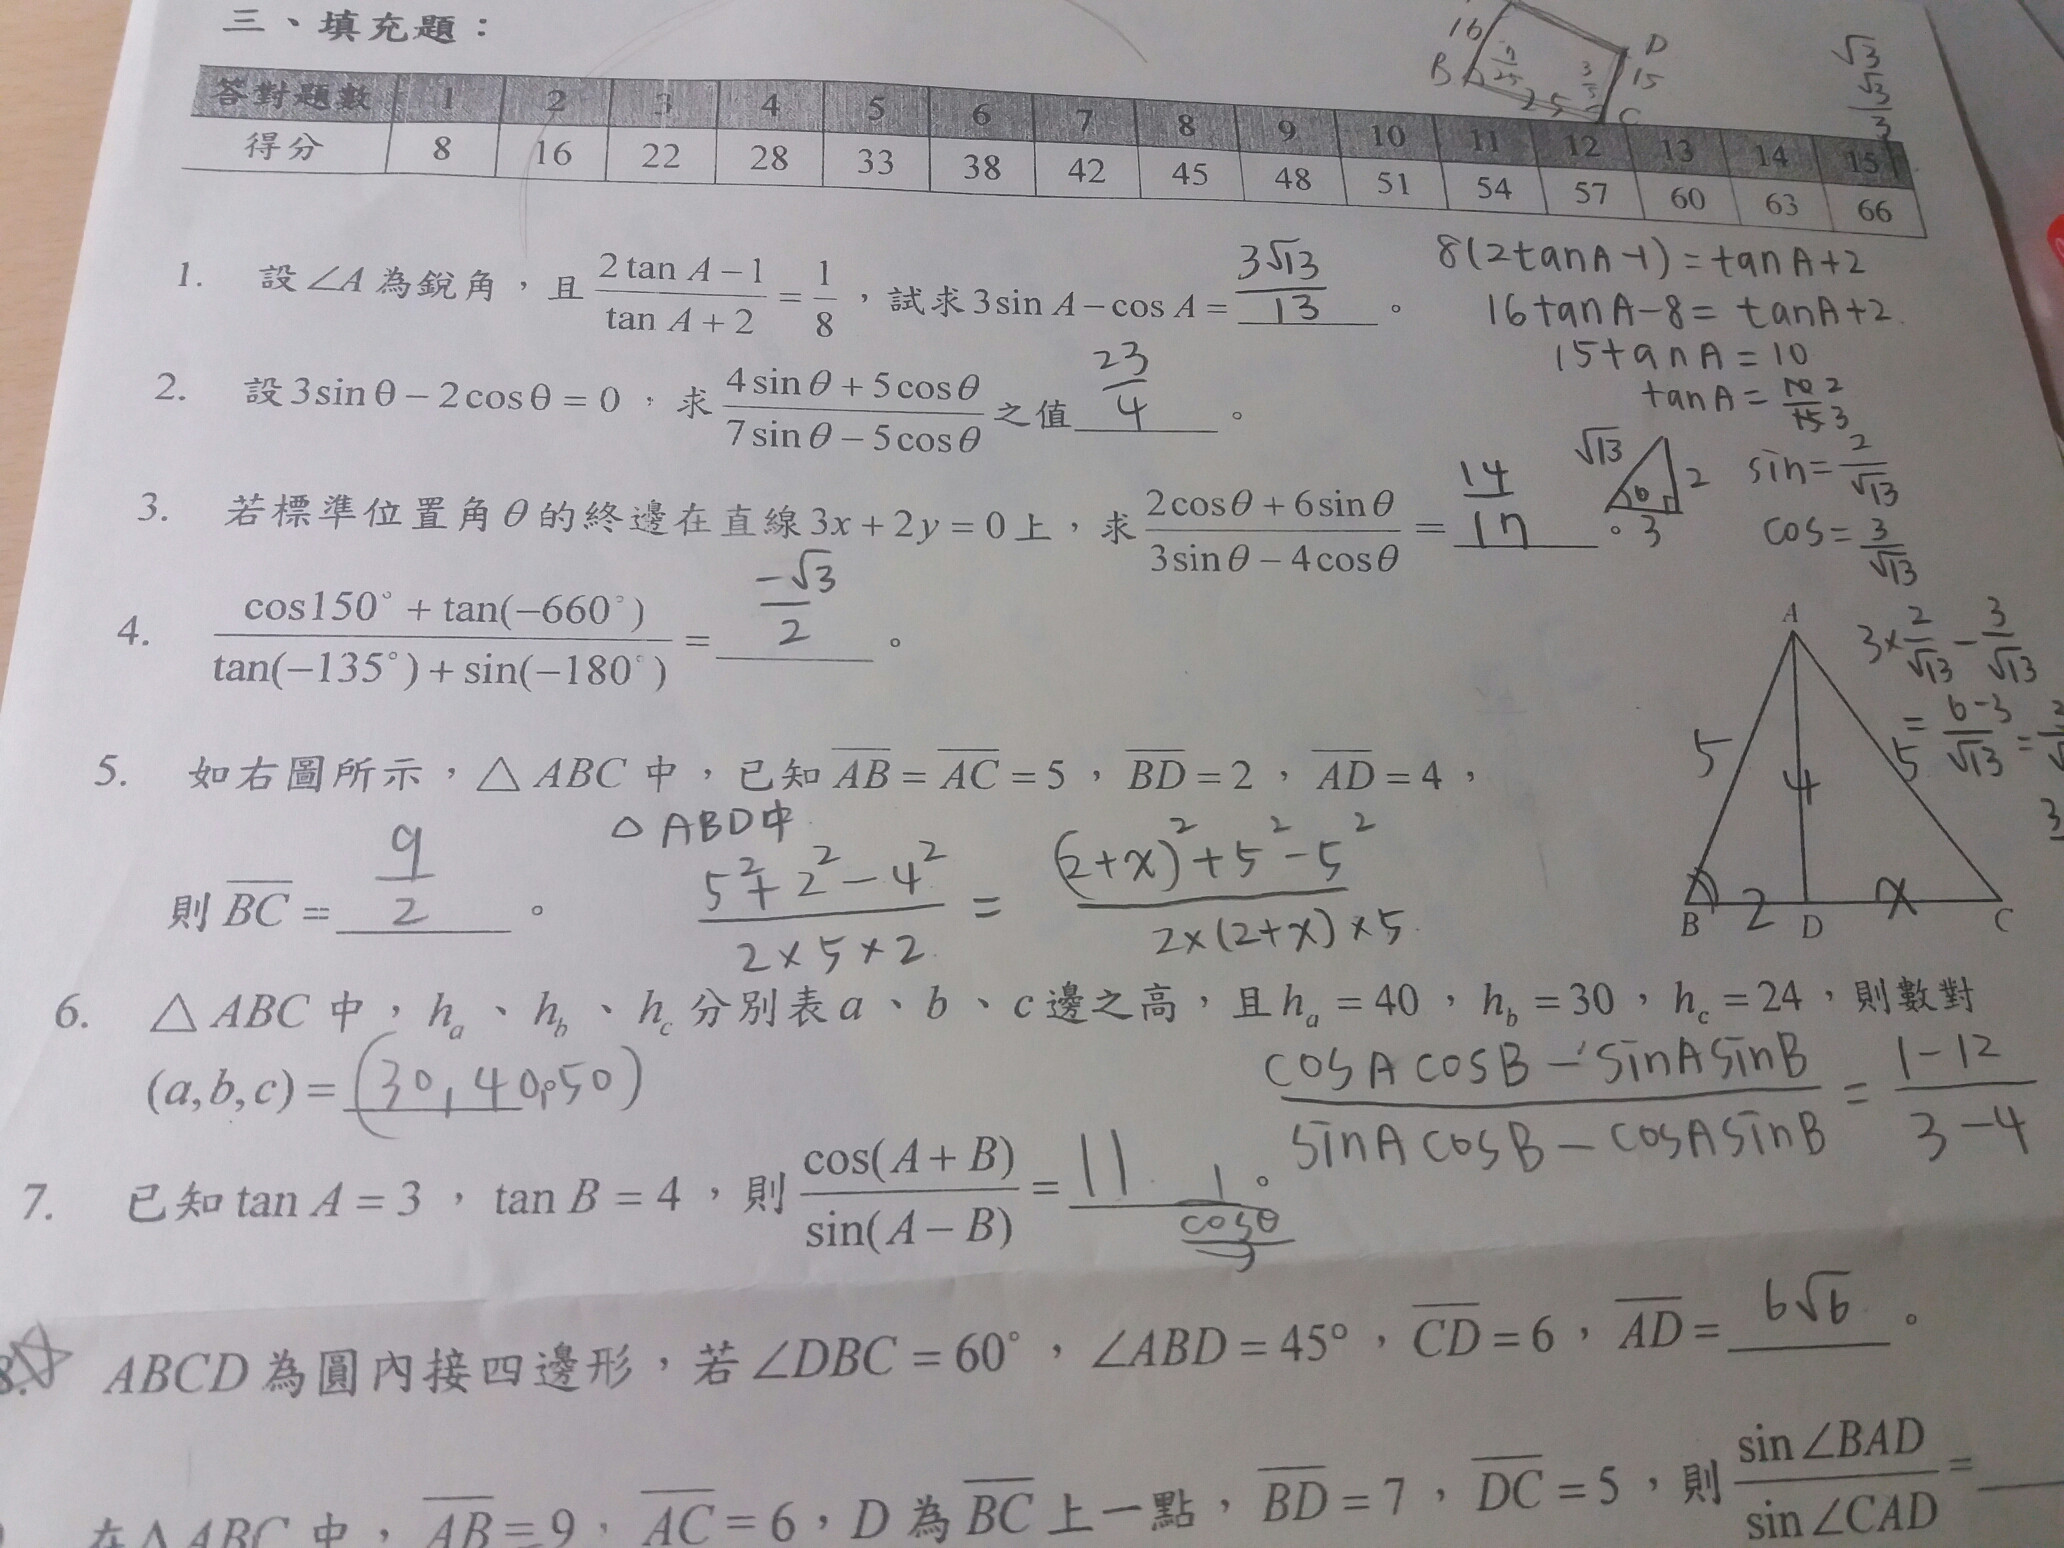 三、填充題：
16 D
B 7/25 3/5 15
25 C
√3
√3/3
答對題數 1 2 3 4 5 6 7 8 9 10 11 12 13 14 15
得分 8 16 22 28 33 38 42 45 48 51 54 57 60 63 66
1. 設∠A為銳角，且 (2 tan A − 1)/(tan A + 2) = 1/8，試求 3 sin A − cos A = 3√13/13。
8(2tanA-1)=tanA+2
16tanA-8=tanA+2
15tanA=10
tanA=10/15 2/3
2. 設 3 sin θ − 2 cos θ = 0，求 (4 sin θ + 5 cos θ)/(7 sin θ − 5 cos θ) 之值 23/4。
√13 θ 2 3
sin=2/√13
cos=3/√13
3. 若標準位置角θ的終邊在直線 3x + 2y = 0 上，求 (2 cos θ + 6 sin θ)/(3 sin θ − 4 cos θ) = 14/17。
4. (cos150° + tan(−660°))/(tan(−135°) + sin(−180°)) = -√3/2。
3×2/√13-3/√13
=(6-3)/√13=
A
5 4 5
B 2 D x C
5. 如右圖所示，△ABC 中，已知 AB = AC = 5，BD = 2，AD = 4，
則 BC = 9/2。
△ABD中
(5²+2²-4²)/(2×5×2)=((2+x)²+5²-5²)/(2×(2+x)×5)
6. △ABC 中，hₐ、h_b、h_c 分別表 a、b、c 邊之高，且 hₐ = 40，h_b = 30，h_c = 24，則數對
(a,b,c) = (30,40,50)
(cosAcosB-sinAsinB)/(sinAcosB-cosAsinB)=(1-12)/(3-4)
7. 已知 tan A = 3，tan B = 4，則 cos(A + B)/sin(A − B) = 11。
1/cosθ
8. ABCD 為圓內接四邊形，若∠DBC = 60°，∠ABD = 45°，CD = 6，AD = 6√6。
在△ABC 中，AB = 9，AC = 6，D 為 BC 上一點，BD = 7，DC = 5，則 sin∠BAD/sin∠CAD =